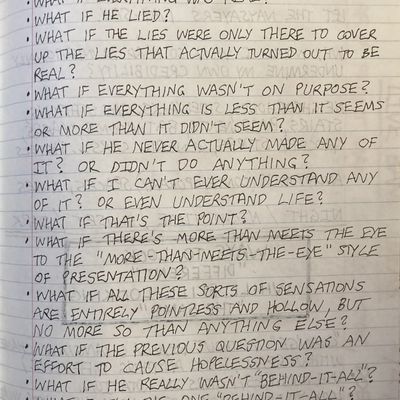 • WHAT IF EVERYTHING WAS
• WHAT IF HE LIED?
• WHAT IF THE LIES WERE ONLY THERE TO COVER
UP THE LIES THAT ACTUALLY TURNED OUT TO BE
REAL?
• WHAT IF EVERYTHING WASN'T ON PURPOSE?
• WHAT IF EVERYTHING IS LESS THAN IT SEEMS
OR MORE THAN IT DIDN'T SEEM?
• WHAT IF HE NEVER ACTUALLY MADE ANY OF
IT? OR DIDN'T DO ANYTHING?
• WHAT IF I CAN'T EVER UNDERSTAND ANY
OF IT? OR EVEN UNDERSTAND LIFE?
• WHAT IF THAT'S THE POINT?
• WHAT IF THERE'S MORE THAN MEETS THE EYE
TO THE "MORE-THAN-MEETS-THE-EYE" STYLE
OF PRESENTATION?
• WHAT IF ALL THESE SORTS OF SENSATIONS
ARE ENTIRELY POINTLESS AND HOLLOW, BUT
NO MORE SO THAN ANYTHING ELSE?
• WHAT IF THE PREVIOUS QUESTION WAS AN
EFFORT TO CAUSE HOPELESSNESS?
• WHAT IF HE REALLY WASN'T "BEHIND-IT-ALL"?
THE ONE "BEHIND-IT-ALL"?